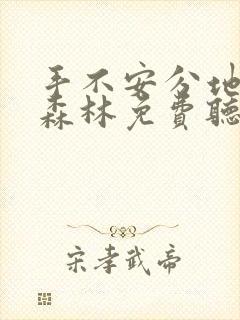 手不安分地
森林免费聽
宋孝武帝